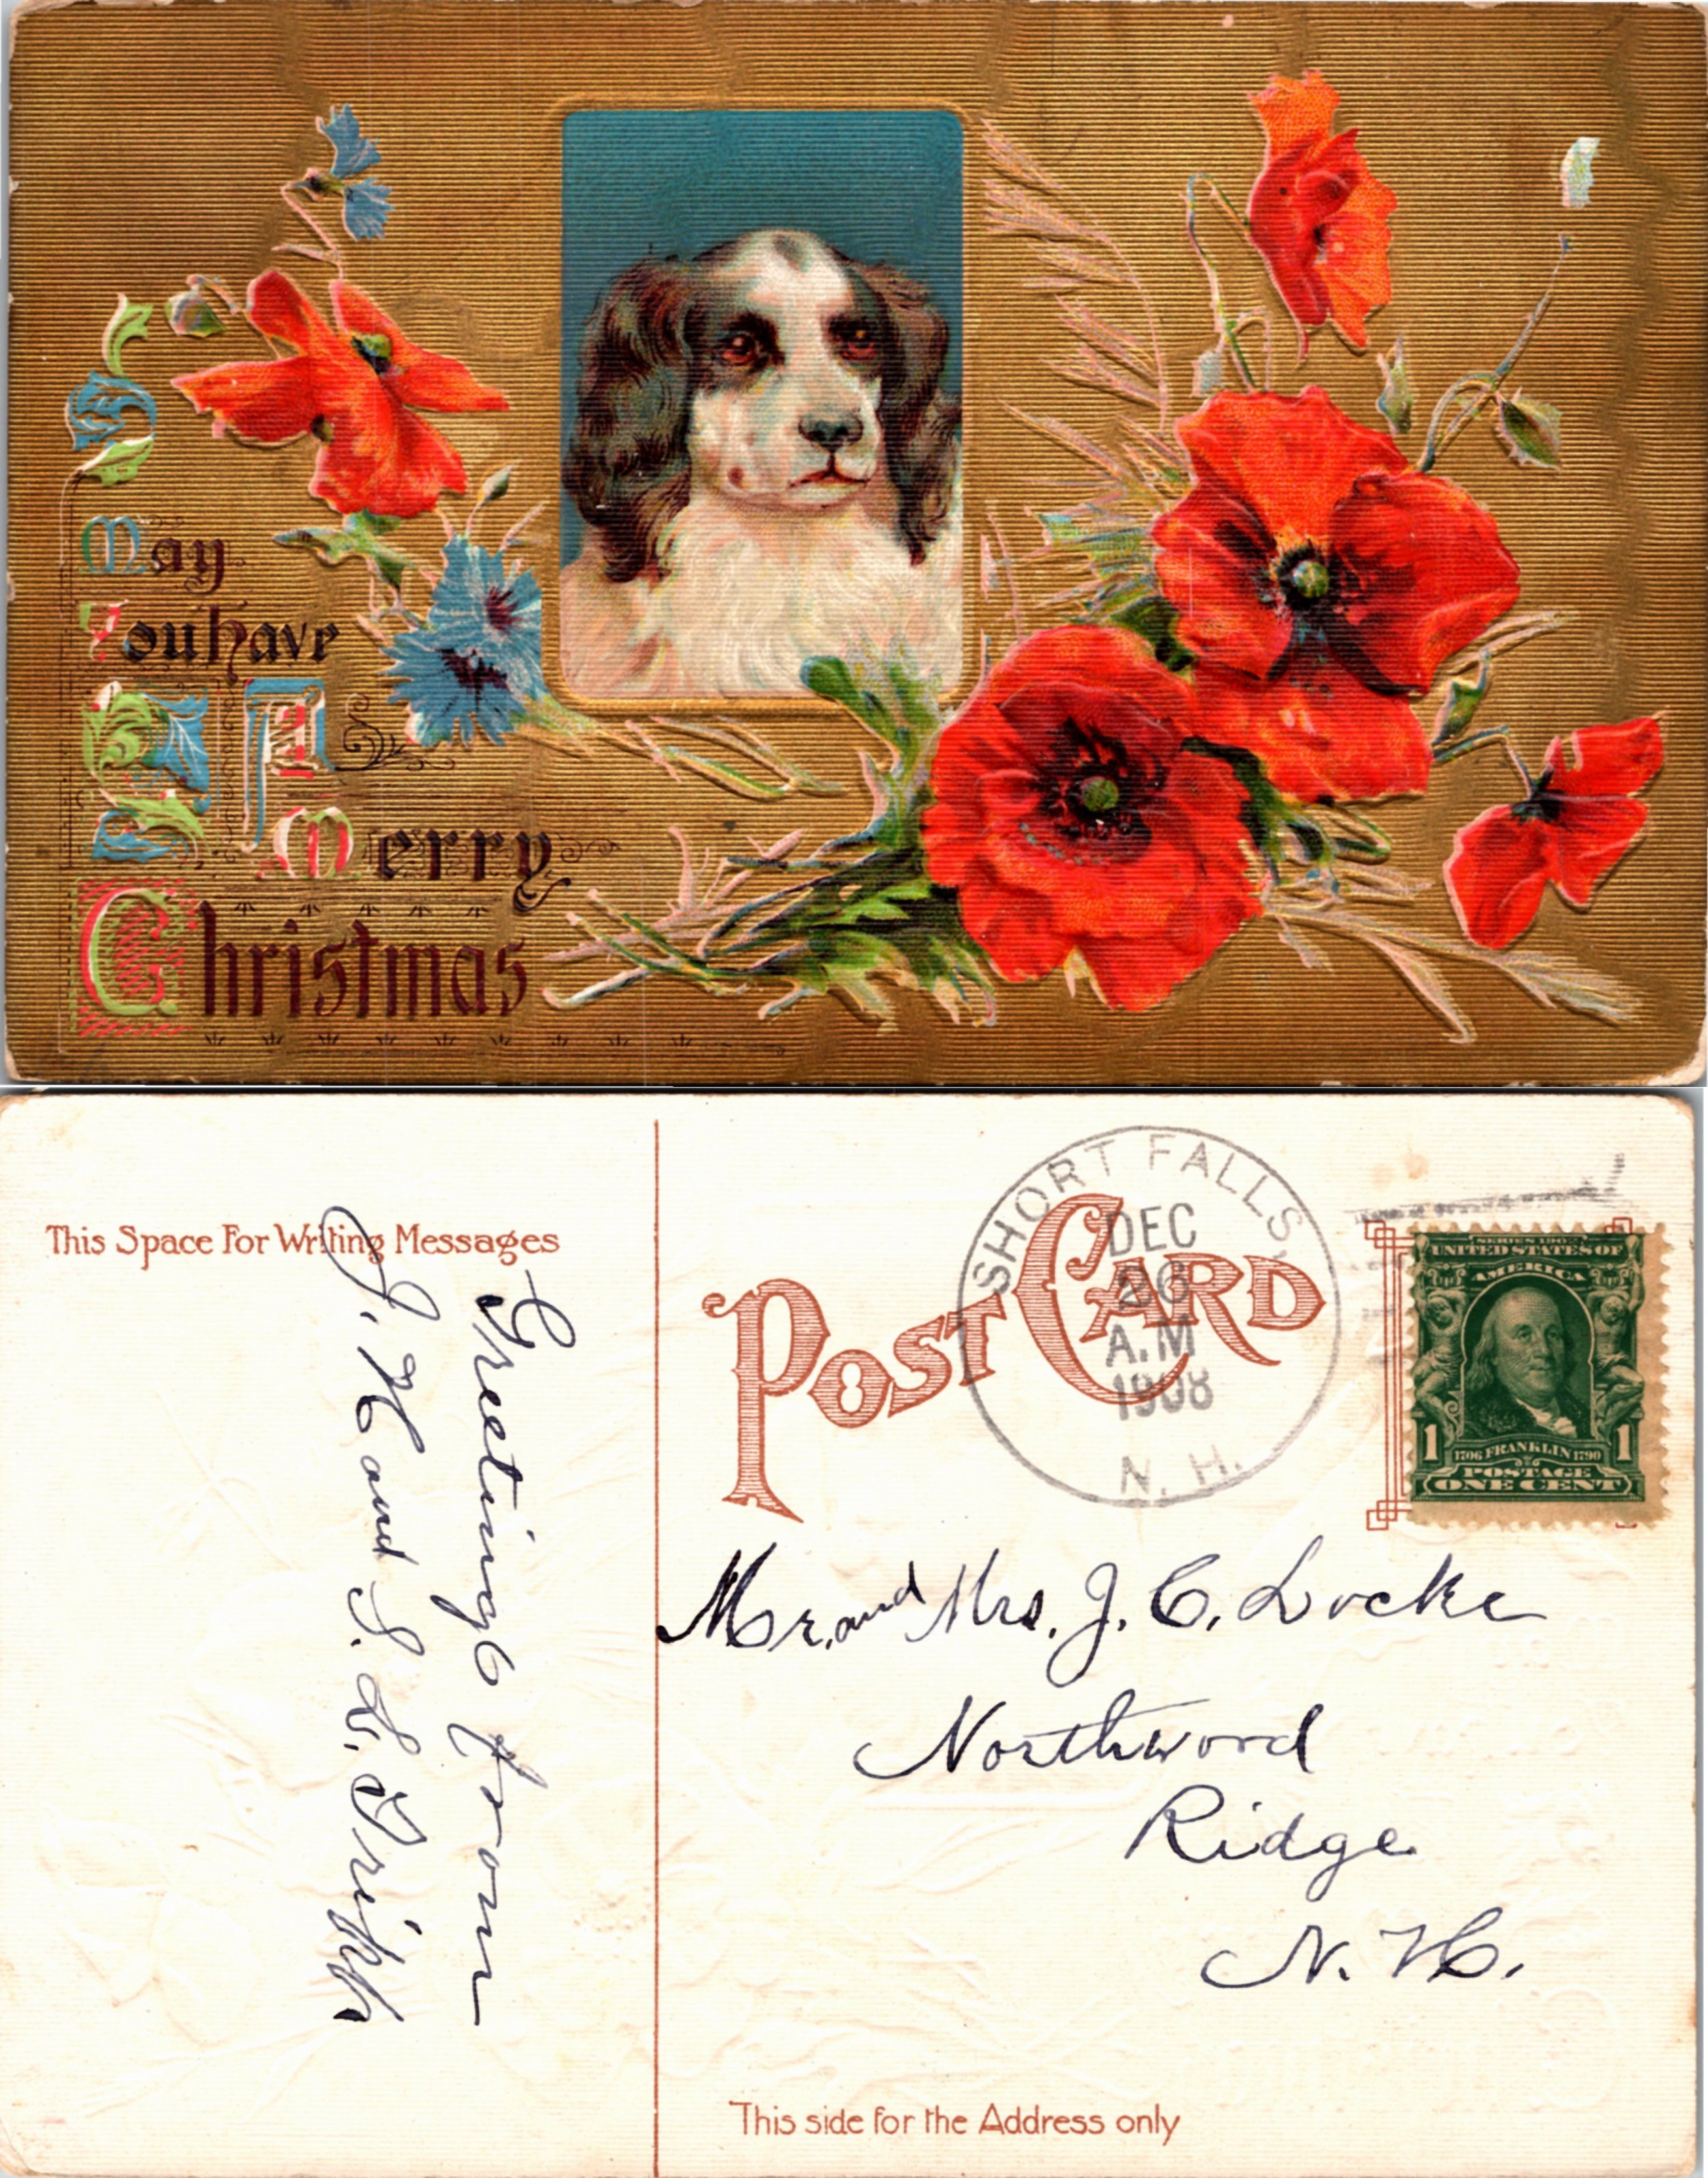 May
You have
A
Merry
Christmas
This Space For Writing Messages
Greetings from
J. H and S. L. Tripp
POST CARD
SHORT FALLS,
DEC
26
A.M
1908
N. H.
SERIES 1902
UNITED STATES OF
AMERICA
1 1706 FRANKLIN 1790 1
POSTAGE
ONE CENT
Mr. and Mrs. J. C. Locke
Northwood
Ridge
N. H.
This side for the Address only